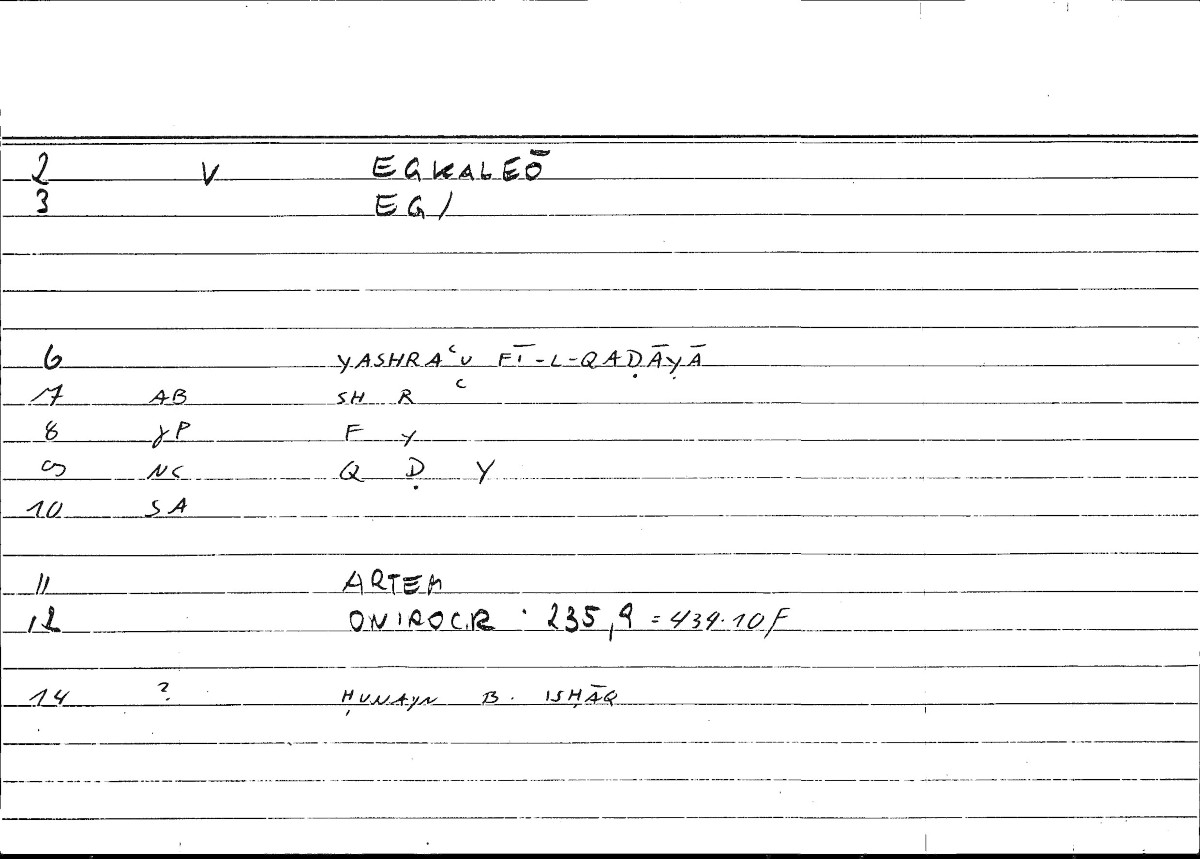 2 V EGKALEŌ
3 EG/
6 YASHRAʿU FĪ-L-QAḌĀYĀ
7 AB SH R ʿ
8 γP F Y
9 NC Q Ḍ Y
10 SA
11 ARTEM
12 ONIROCR. 235,9 = 434.10F
14 ? ḤUNAYN B. ISḤĀQ